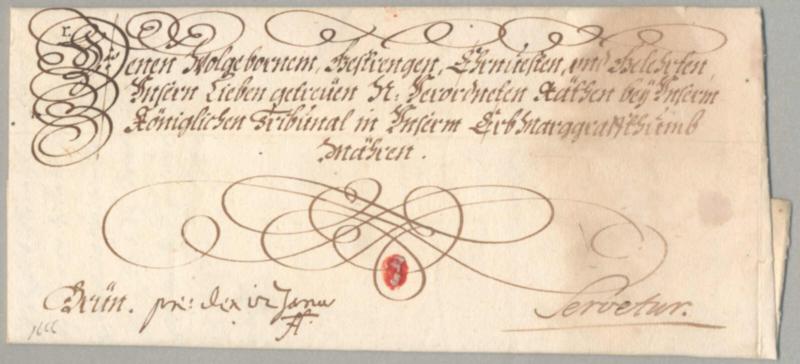 Denen Wolgebornem, Gestrengen, Ehrnvesten, und Gelehrten,
Unsern Lieben getreüen N: Verordneten Räthen beÿ Unserm
Königlichen Tribunal in Unserm Erb Marggraffthumb
Mähren.
Brün. Servetur.